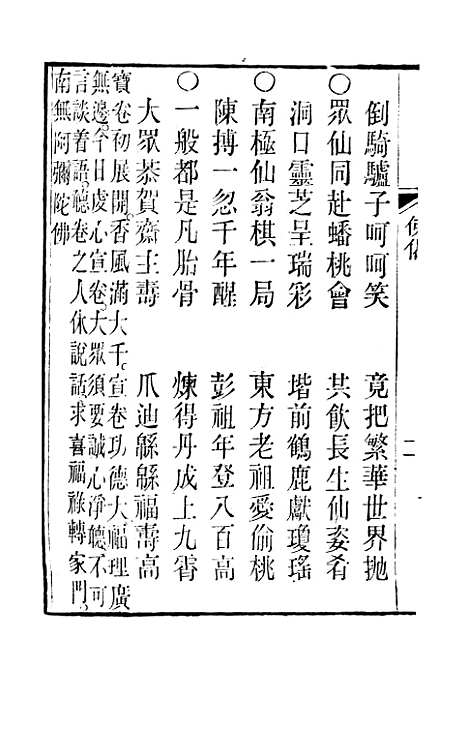 倒騎驢子呵呵笑　竟把繁華世界拋
○眾仙同赴蟠桃會　共飲長生仙姿肴
洞口靈芝呈瑞彩　堦前鶴鹿獻瓊瑤
○南極仙翁棋一局　東方老祖愛偷桃
陳摶一忽千年醒　彭祖年登八百高
○一般都是凡胎骨　煉得丹成上九霄
大眾恭賀齋主壽　瓜迪緜緜福壽高
寶卷初展開。香風滿大千。宣卷功德大。福理廣
無邊。今日虔心宣卷。大眾須要誠心淨聽。不可
言談着語。聽卷之人休說話。求喜福祿轉家門。
南無阿彌陀佛
二